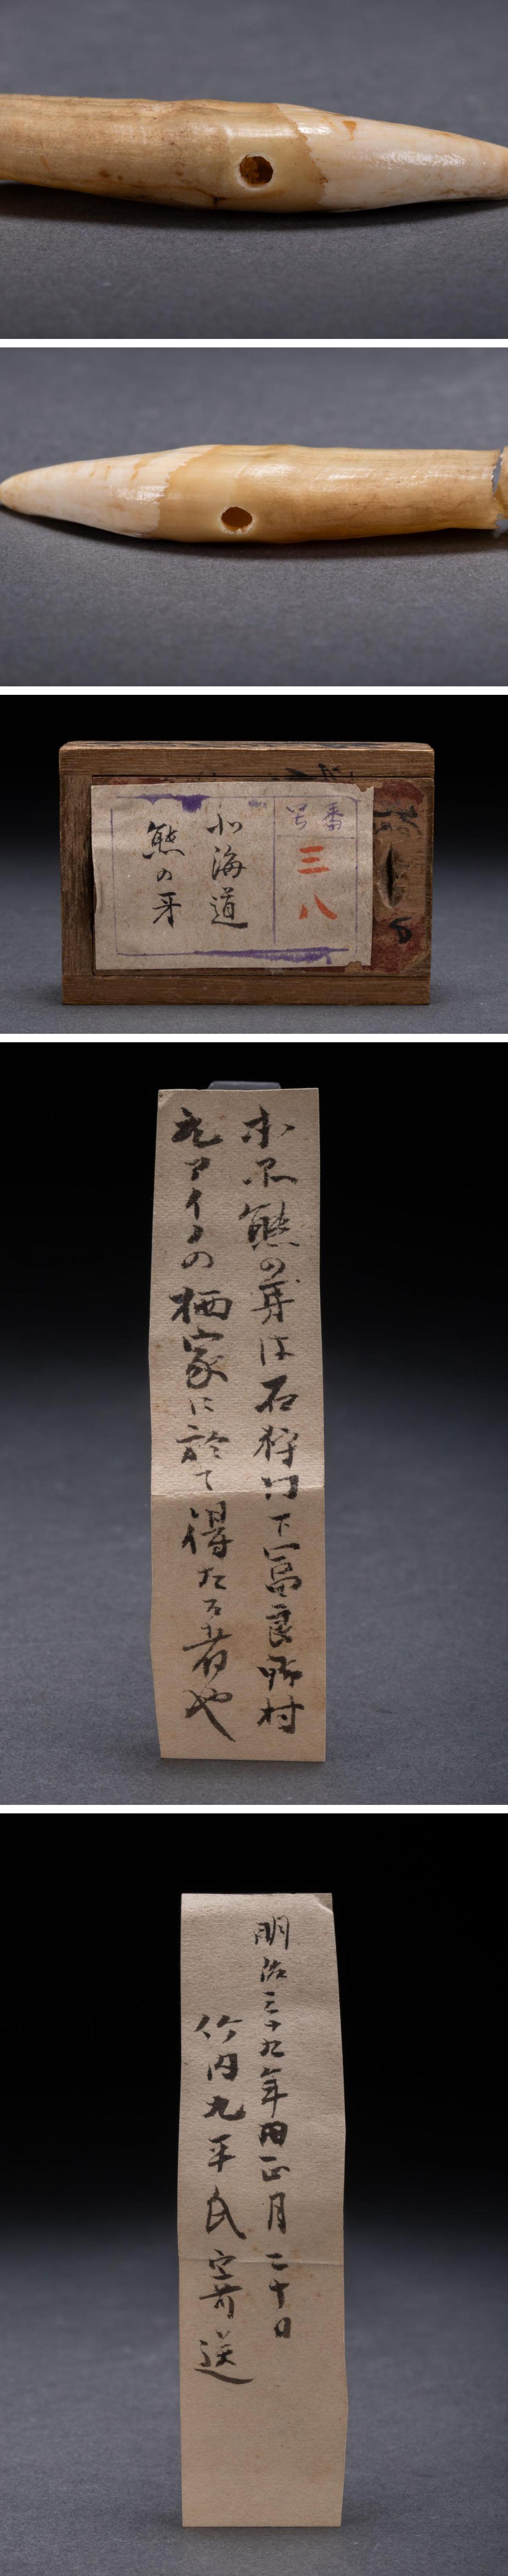 番号
三八
北海道
熊の牙
熊の牙は石狩門下富良野村
元アイノの栖家に於て得たる者也
明治三十九年旧正月二十日
竹内九平氏寄送